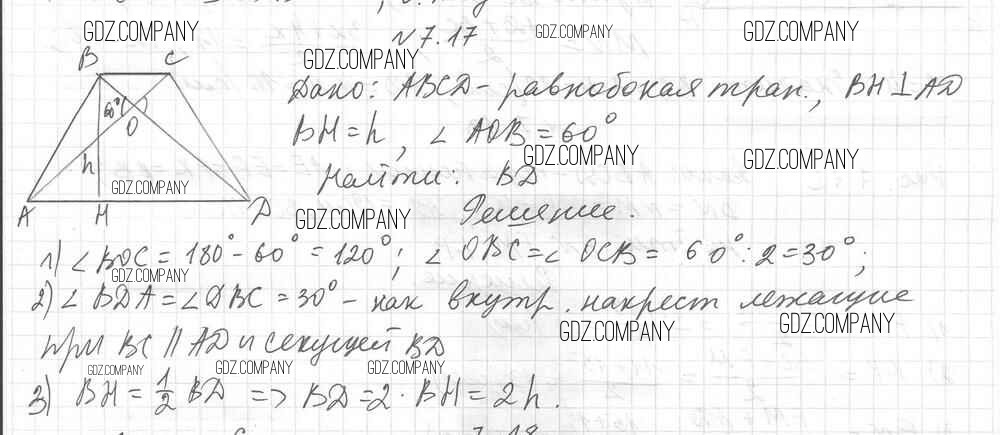 GDZ.COMPANY
GDZ.COMPANY
GDZ.COMPANY
N 7.17
GDZ.COMPANY
B C
Дано: ABCD - равнобокая трап., BH ⊥ AD
60°
O
BH = h, ∠ AOB = 60°
GDZ.COMPANY
GDZ.COMPANY
h
Найти: BD
GDZ.COMPANY
A H D
GDZ.COMPANY
Решение.
1) ∠ BOC = 180° - 60° = 120°; ∠ OBC = ∠ OCB = 60° : 2 = 30°;
GDZ.COMPANY
2) ∠ BDA = ∠ DBC = 30° - как внутр. накрест лежащие
GDZ.COMPANY
GDZ.COMPANY
при BC || AD и секущей BD
GDZ.COMPANY
GDZ.COMPANY
GDZ.COMPANY
3) BH = 1/2 BD => BD = 2 · BH = 2h.
7.18